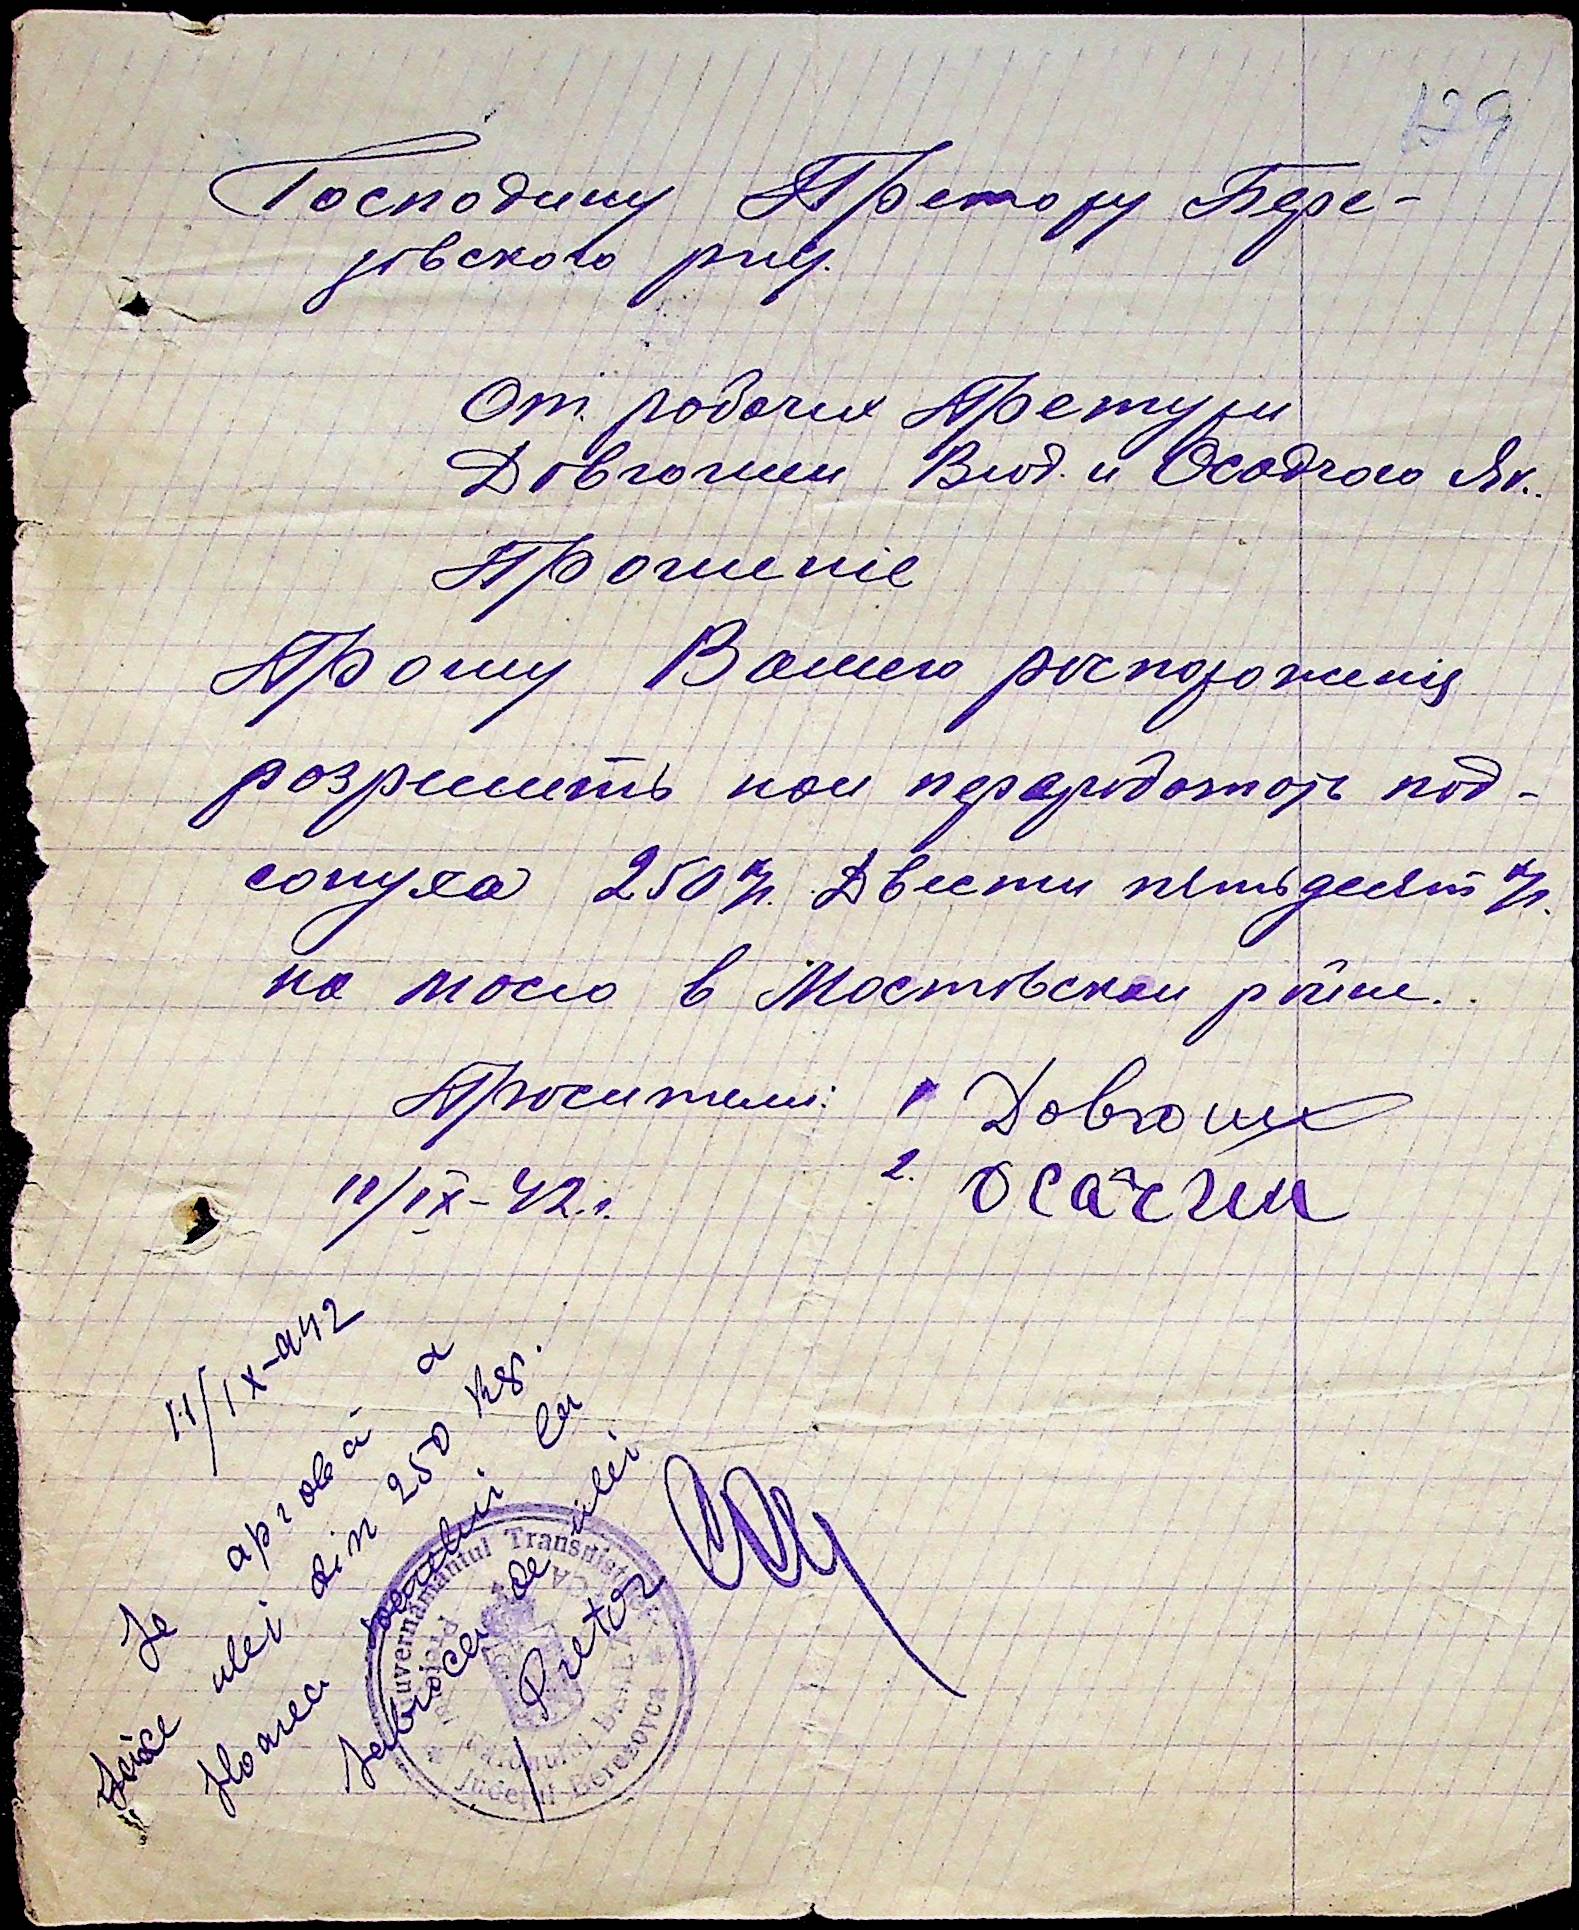 129
Господину Претору Бере-
зовского рну.
От робочих Претури
Довгошеи Влод. и Осадчого Як.
Прошеніе
Прошу Вашего роспороженія
розрешить нам перероботать под-
солуха 250 кг. Двести пятьдесят кг.
на масло в Мостовском районе.
Просители: 1 Довгоше
11/IX-42 г. 2. Осачий
11/IX-942
Se aprobă a
face ulei din 250 kg.
floarea soarelui la
fabrica de ulei
Pretor
Guvernământul Transnistriei
Județul Berezovca